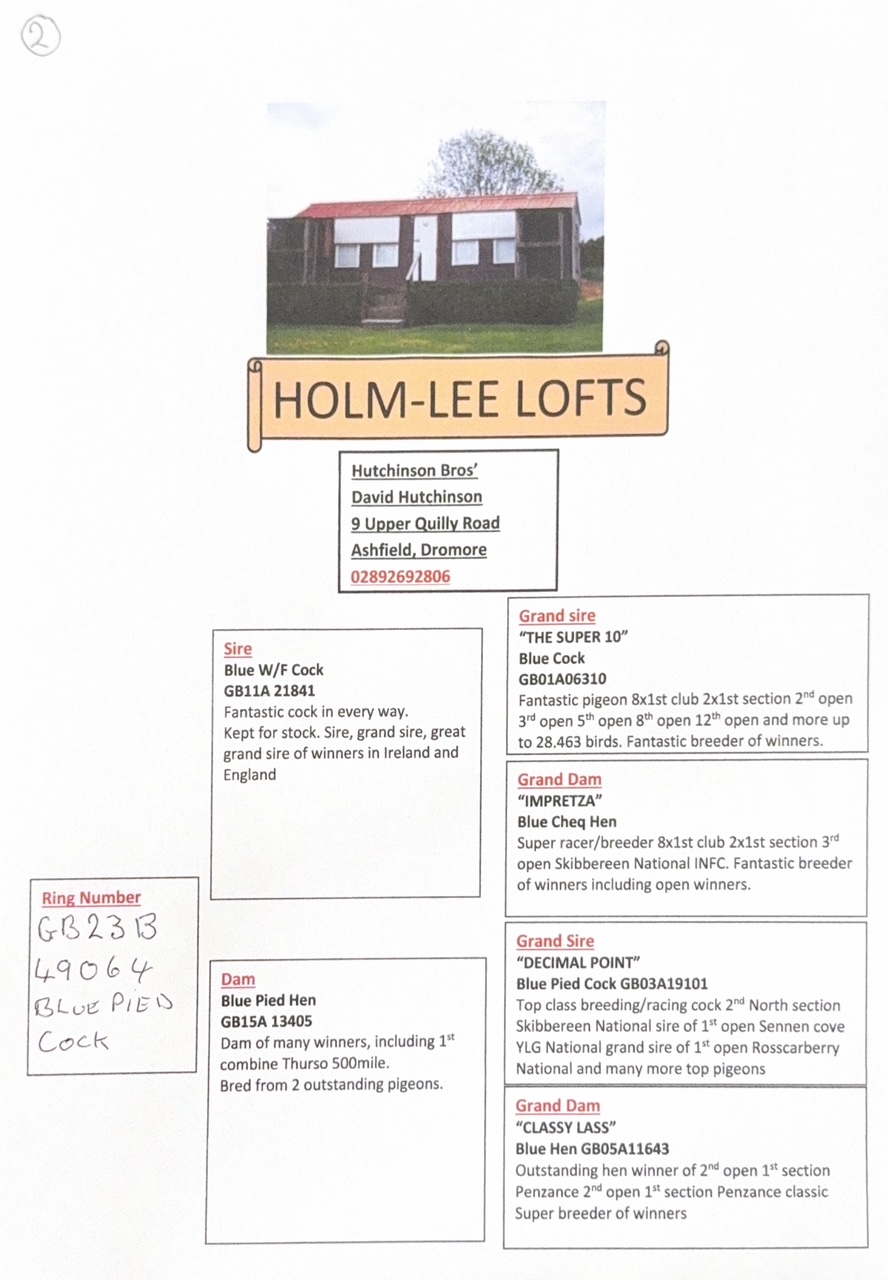 2
HOLM-LEE LOFTS
Hutchinson Bros’
David Hutchinson
9 Upper Quilly Road
Ashfield, Dromore
02892692806
Grand sire
“THE SUPER 10”
Blue Cock
GB01A06310
Fantastic pigeon 8x1st club 2x1st section 2nd open
3rd open 5th open 8th open 12th open and more up
to 28.463 birds. Fantastic breeder of winners.
Sire
Blue W/F Cock
GB11A 21841
Fantastic cock in every way.
Kept for stock. Sire, grand sire, great
grand sire of winners in Ireland and
England
Grand Dam
“IMPRETZA”
Blue Cheq Hen
Super racer/breeder 8x1st club 2x1st section 3rd
open Skibbereen National INFC. Fantastic breeder
of winners including open winners.
Ring Number
GB23B
49064
BLUE PIED
COCK
Grand Sire
“DECIMAL POINT”
Blue Pied Cock GB03A19101
Top class breeding/racing cock 2nd North section
Skibbereen National sire of 1st open Sennen cove
YLG National grand sire of 1st open Rosscarberry
National and many more top pigeons
Dam
Blue Pied Hen
GB15A 13405
Dam of many winners, including 1st
combine Thurso 500mile.
Bred from 2 outstanding pigeons.
Grand Dam
“CLASSY LASS”
Blue Hen GB05A11643
Outstanding hen winner of 2nd open 1st section
Penzance 2nd open 1st section Penzance classic
Super breeder of winners